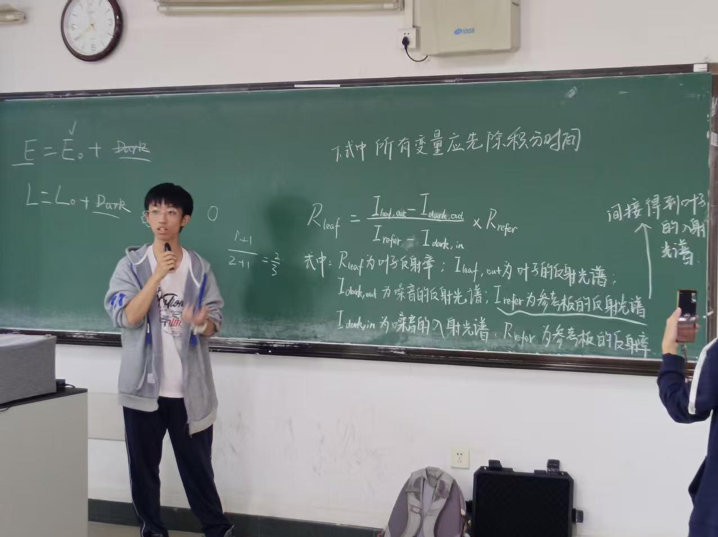 E = E₀ + Dark
L = L₀ + Dark
0
1+1
2+1
= 2/3
下式中所有变量应先除积分时间
R leaf = (I leaf,out − I dark,out) / (I refer − I dark,in) × R refer
间接得到叶子
的入射
光谱
式中: R leaf 为叶子反射率; I leaf,out 为叶子的反射光谱;
I dark,out 为噪音的反射光谱; I refer 为参考板的反射光谱
I dark,in 为噪音的入射光谱、R refer 为参考板的反射率